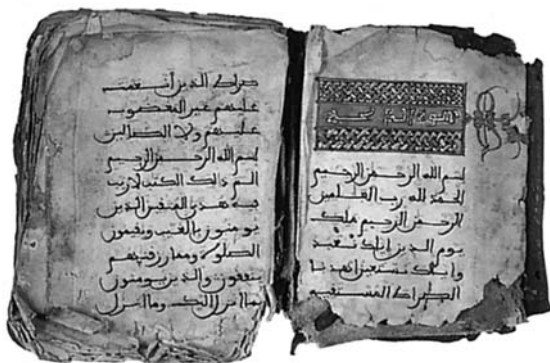 بسم الله الرحمن الرحيم
الحمد لله رب العلمين
الرحمن الرحيم ملك
يوم الدين اياك نعبد
واياك نستعين اهدنا
الصراط المستقيم
صراط الذين انعمت
عليهم غير المغضوب
عليهم ولا الضالين
بسم الله الرحمن الرحيم
الم ذلك الكتب لا ريب
فيه هدى للمتقين الذين
يومنون بالغيب ويقيمون
الصلوة ومما رزقنهم
ينفقون والذين يومنون
بما انزل اليك وما انزل